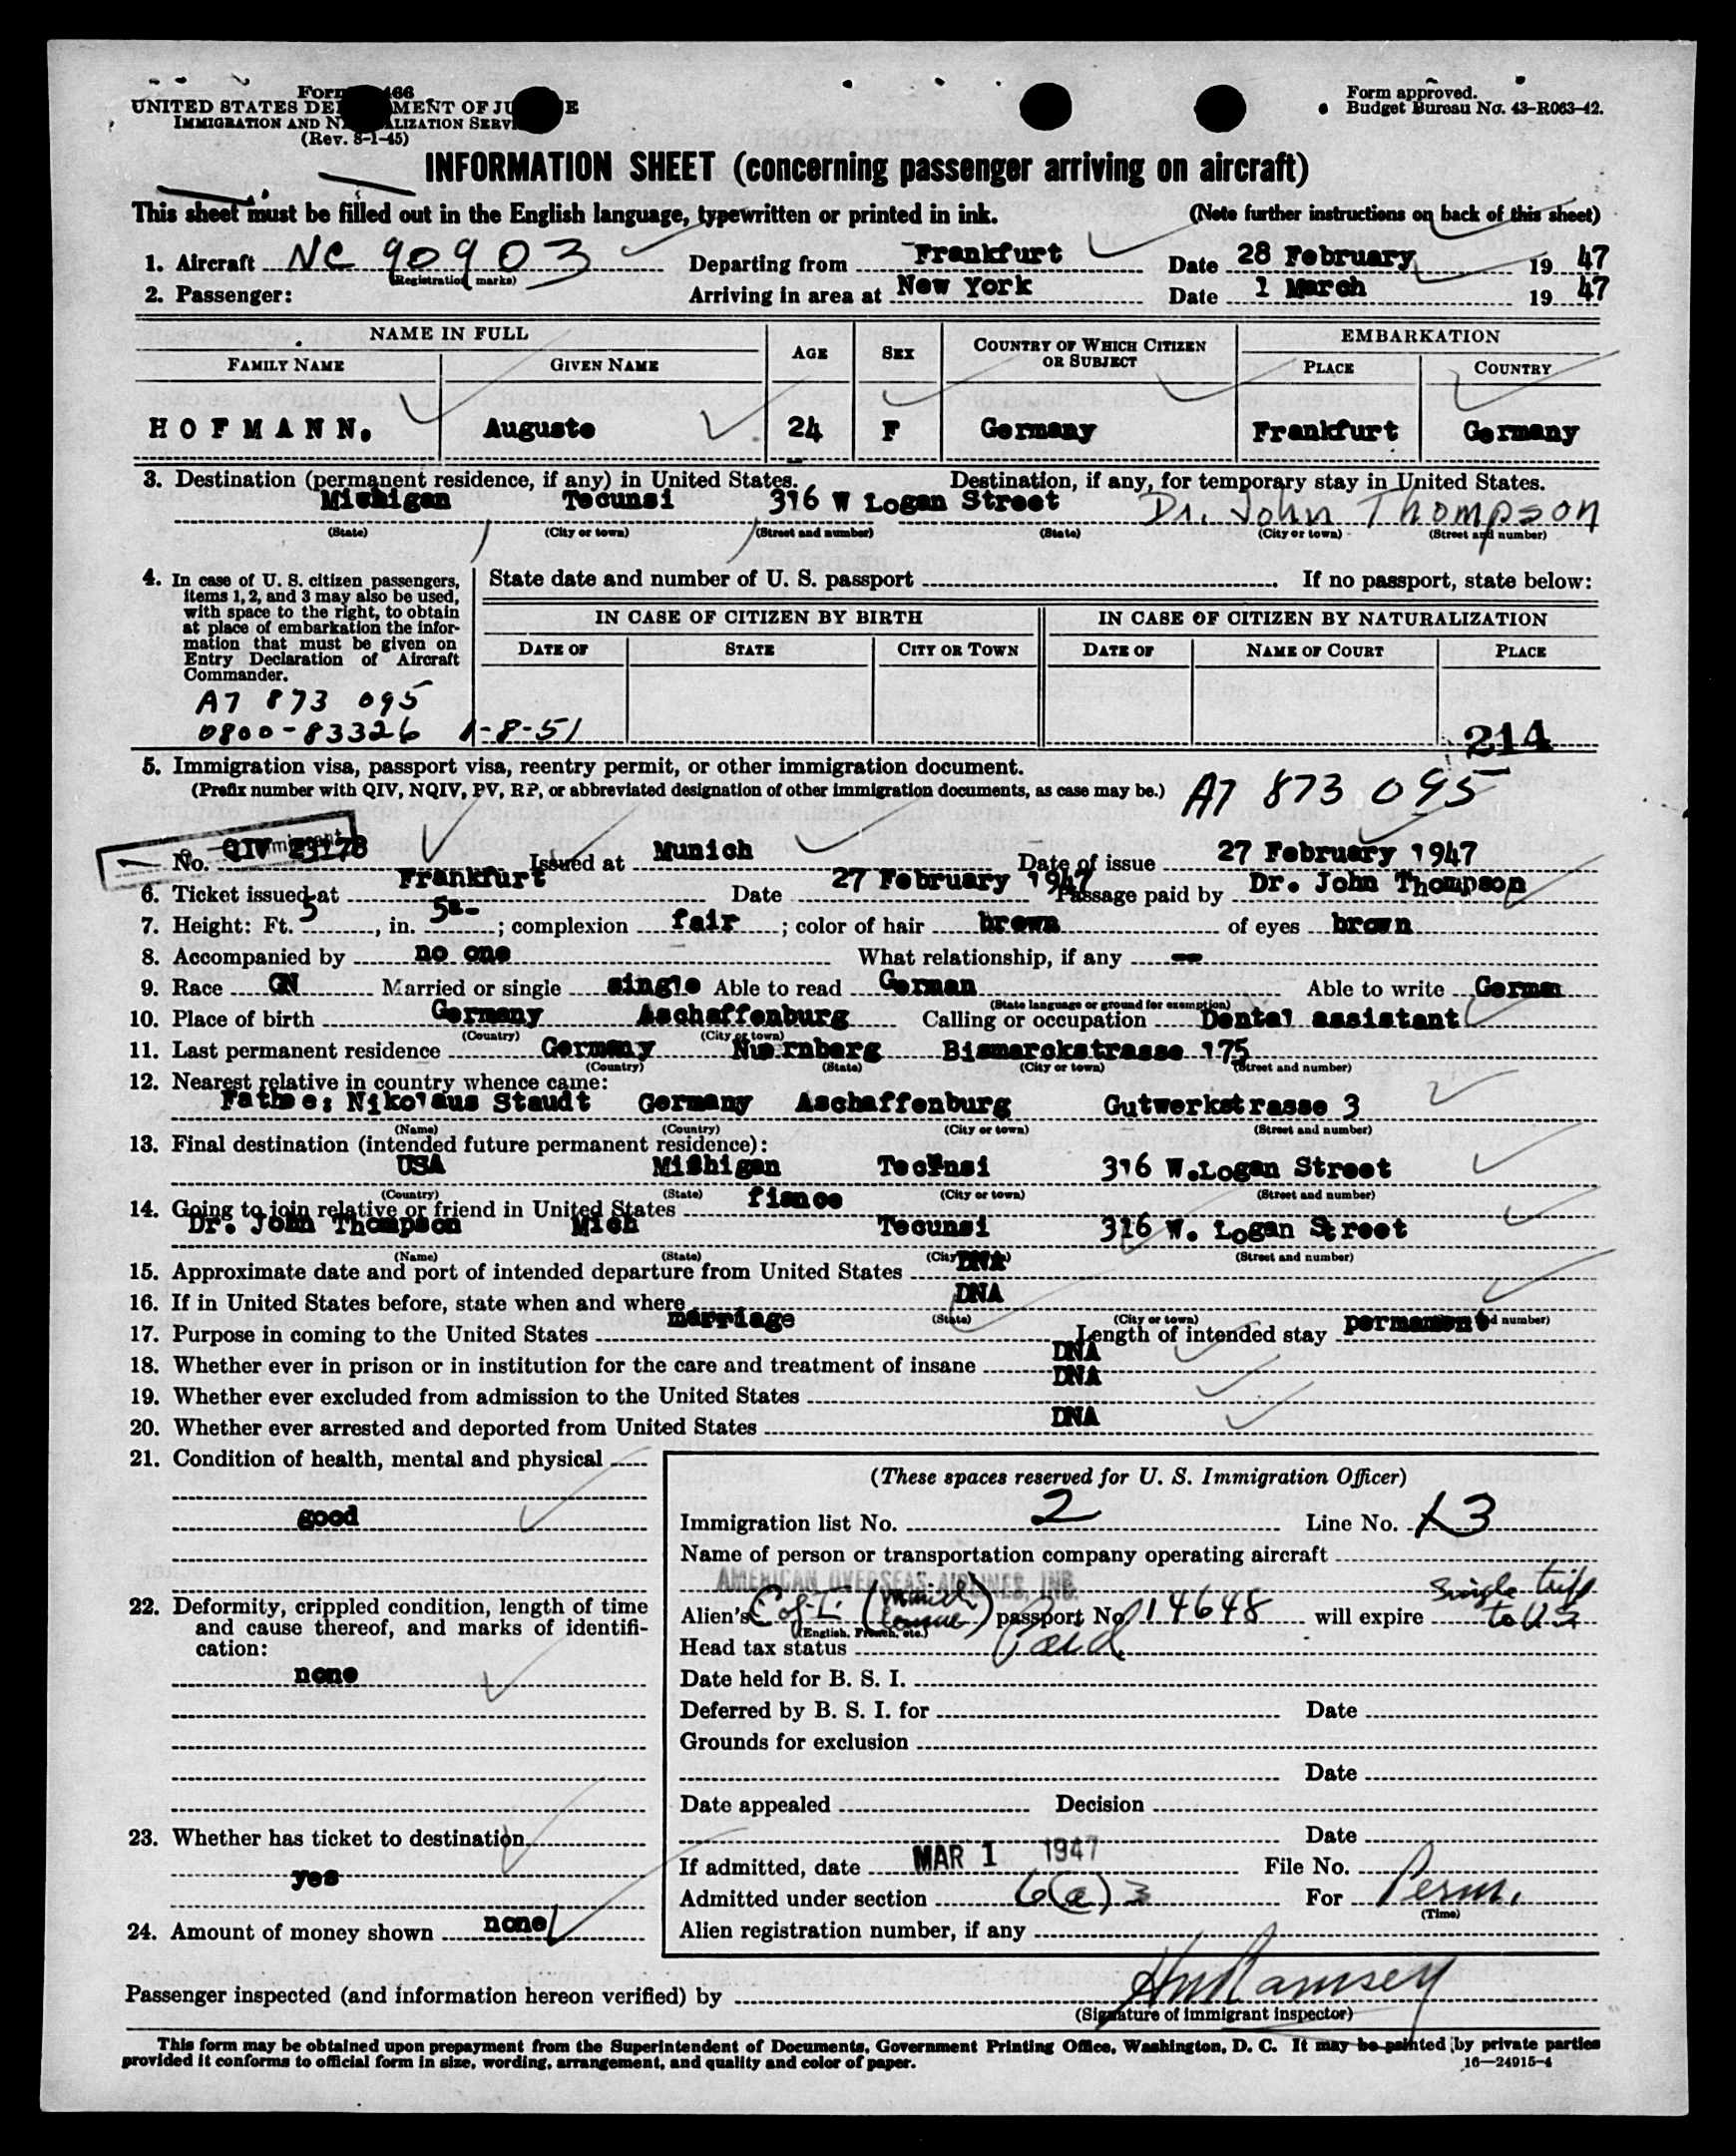 Form 466
UNITED STATES DE MENT OF JU E
IMMIGRATION AND N ALIZATION SERV
(Rev. 8-1-45)
Form approved.
Budget Bureau No. 43-R063-42.
INFORMATION SHEET (concerning passenger arriving on aircraft)
This sheet must be filled out in the English language, typewritten or printed in ink. (Note further instructions on back of this sheet)
1. Aircraft NC 90903 Departing from Frankfurt Date 28 February 1947
(Registration marks)
2. Passenger: Arriving in area at New York Date 1 March 1947
NAME IN FULL AGE SEX COUNTRY OF WHICH CITIZEN OR SUBJECT EMBARKATION
FAMILY NAME GIVEN NAME PLACE COUNTRY
HOFMANN. Auguste 24 F Germany Frankfurt Germany
3. Destination (permanent residence, if any) in United States. Destination, if any, for temporary stay in United States.
Mishigan Tecunsi 316 W Logan Street Dr. John Thompson
(State) (City or town) (Street and number) (State) (City or town) (Street and number)
4. In case of U. S. citizen passengers, items 1, 2, and 3 may also be used, with space to the right, to obtain at place of embarkation the information that must be given on Entry Declaration of Aircraft Commander.
State date and number of U. S. passport If no passport, state below:
IN CASE OF CITIZEN BY BIRTH IN CASE OF CITIZEN BY NATURALIZATION
DATE OF STATE CITY OR TOWN DATE OF NAME OF COURT PLACE
A7 873 095
0800-83326 1-8-51 214
5. Immigration visa, passport visa, reentry permit, or other immigration document.
(Prefix number with QIV, NQIV, PV, RP, or abbreviated designation of other immigration documents, as case may be.) A7 873 095
No. QIV 23178 Issued at Munich Date of issue 27 February 1947
6. Ticket issued at Frankfurt Date 27 February 1947 Passage paid by Dr. John Thompson
7. Height: Ft. 5, in. 5; complexion fair; color of hair brown of eyes brown
8. Accompanied by no one What relationship, if any --
9. Race GN Married or single single Able to read German Able to write German
(State language or ground for exemption)
10. Place of birth Germany Aschaffenburg Calling or occupation Dental assistant
(Country) (City or town)
11. Last permanent residence Germany Nuernberg Bismarckstrasse 175
(Country) (State) (City or town) (Street and number)
12. Nearest relative in country whence came:
Nikolaus Staudt Germany Aschaffenburg Gutwerkstrasse 3
(Name) (Country) (City or town) (Street and number)
13. Final destination (intended future permanent residence):
USA Mishigan Tecunsi 316 W.Logan Street
(Country) (State) (City or town) (Street and number)
14. Going to join relative or friend in United States fiance
Dr. John Thompson Mich Tecunsi 316 W. Logan Street
(Name) (State) (City or town) (Street and number)
15. Approximate date and port of intended departure from United States DNA
16. If in United States before, state when and where DNA
(State) (City or town) (Street and number)
17. Purpose in coming to the United States marriage Length of intended stay permanent
18. Whether ever in prison or in institution for the care and treatment of insane DNA
19. Whether ever excluded from admission to the United States DNA
20. Whether ever arrested and deported from United States DNA
21. Condition of health, mental and physical
good
22. Deformity, crippled condition, length of time and cause thereof, and marks of identification:
none
23. Whether has ticket to destination
yes
24. Amount of money shown none
(These spaces reserved for U. S. Immigration Officer)
Immigration list No. 2 Line No. 13
Name of person or transportation company operating aircraft
AMERICAN OVERSEAS AIRLINES, INC.
Alien's C of I (Munich) passport No. 14648 will expire single trip to US
(English, French, etc.)
Head tax status Paid
Date held for B. S. I.
Deferred by B. S. I. for Date
Grounds for exclusion
Date
Date appealed Decision
Date
If admitted, date MAR 1 1947 File No.
Admitted under section 6(a)3 For Perm.
(Time)
Alien registration number, if any
Passenger inspected (and information hereon verified) by HM Ramsey
(Signature of immigrant inspector)
This form may be obtained upon prepayment from the Superintendent of Documents, Government Printing Office, Washington, D. C. It may be printed by private parties
provided it conforms to official form in size, wording, arrangement, and quality and color of paper.
16—24915-4